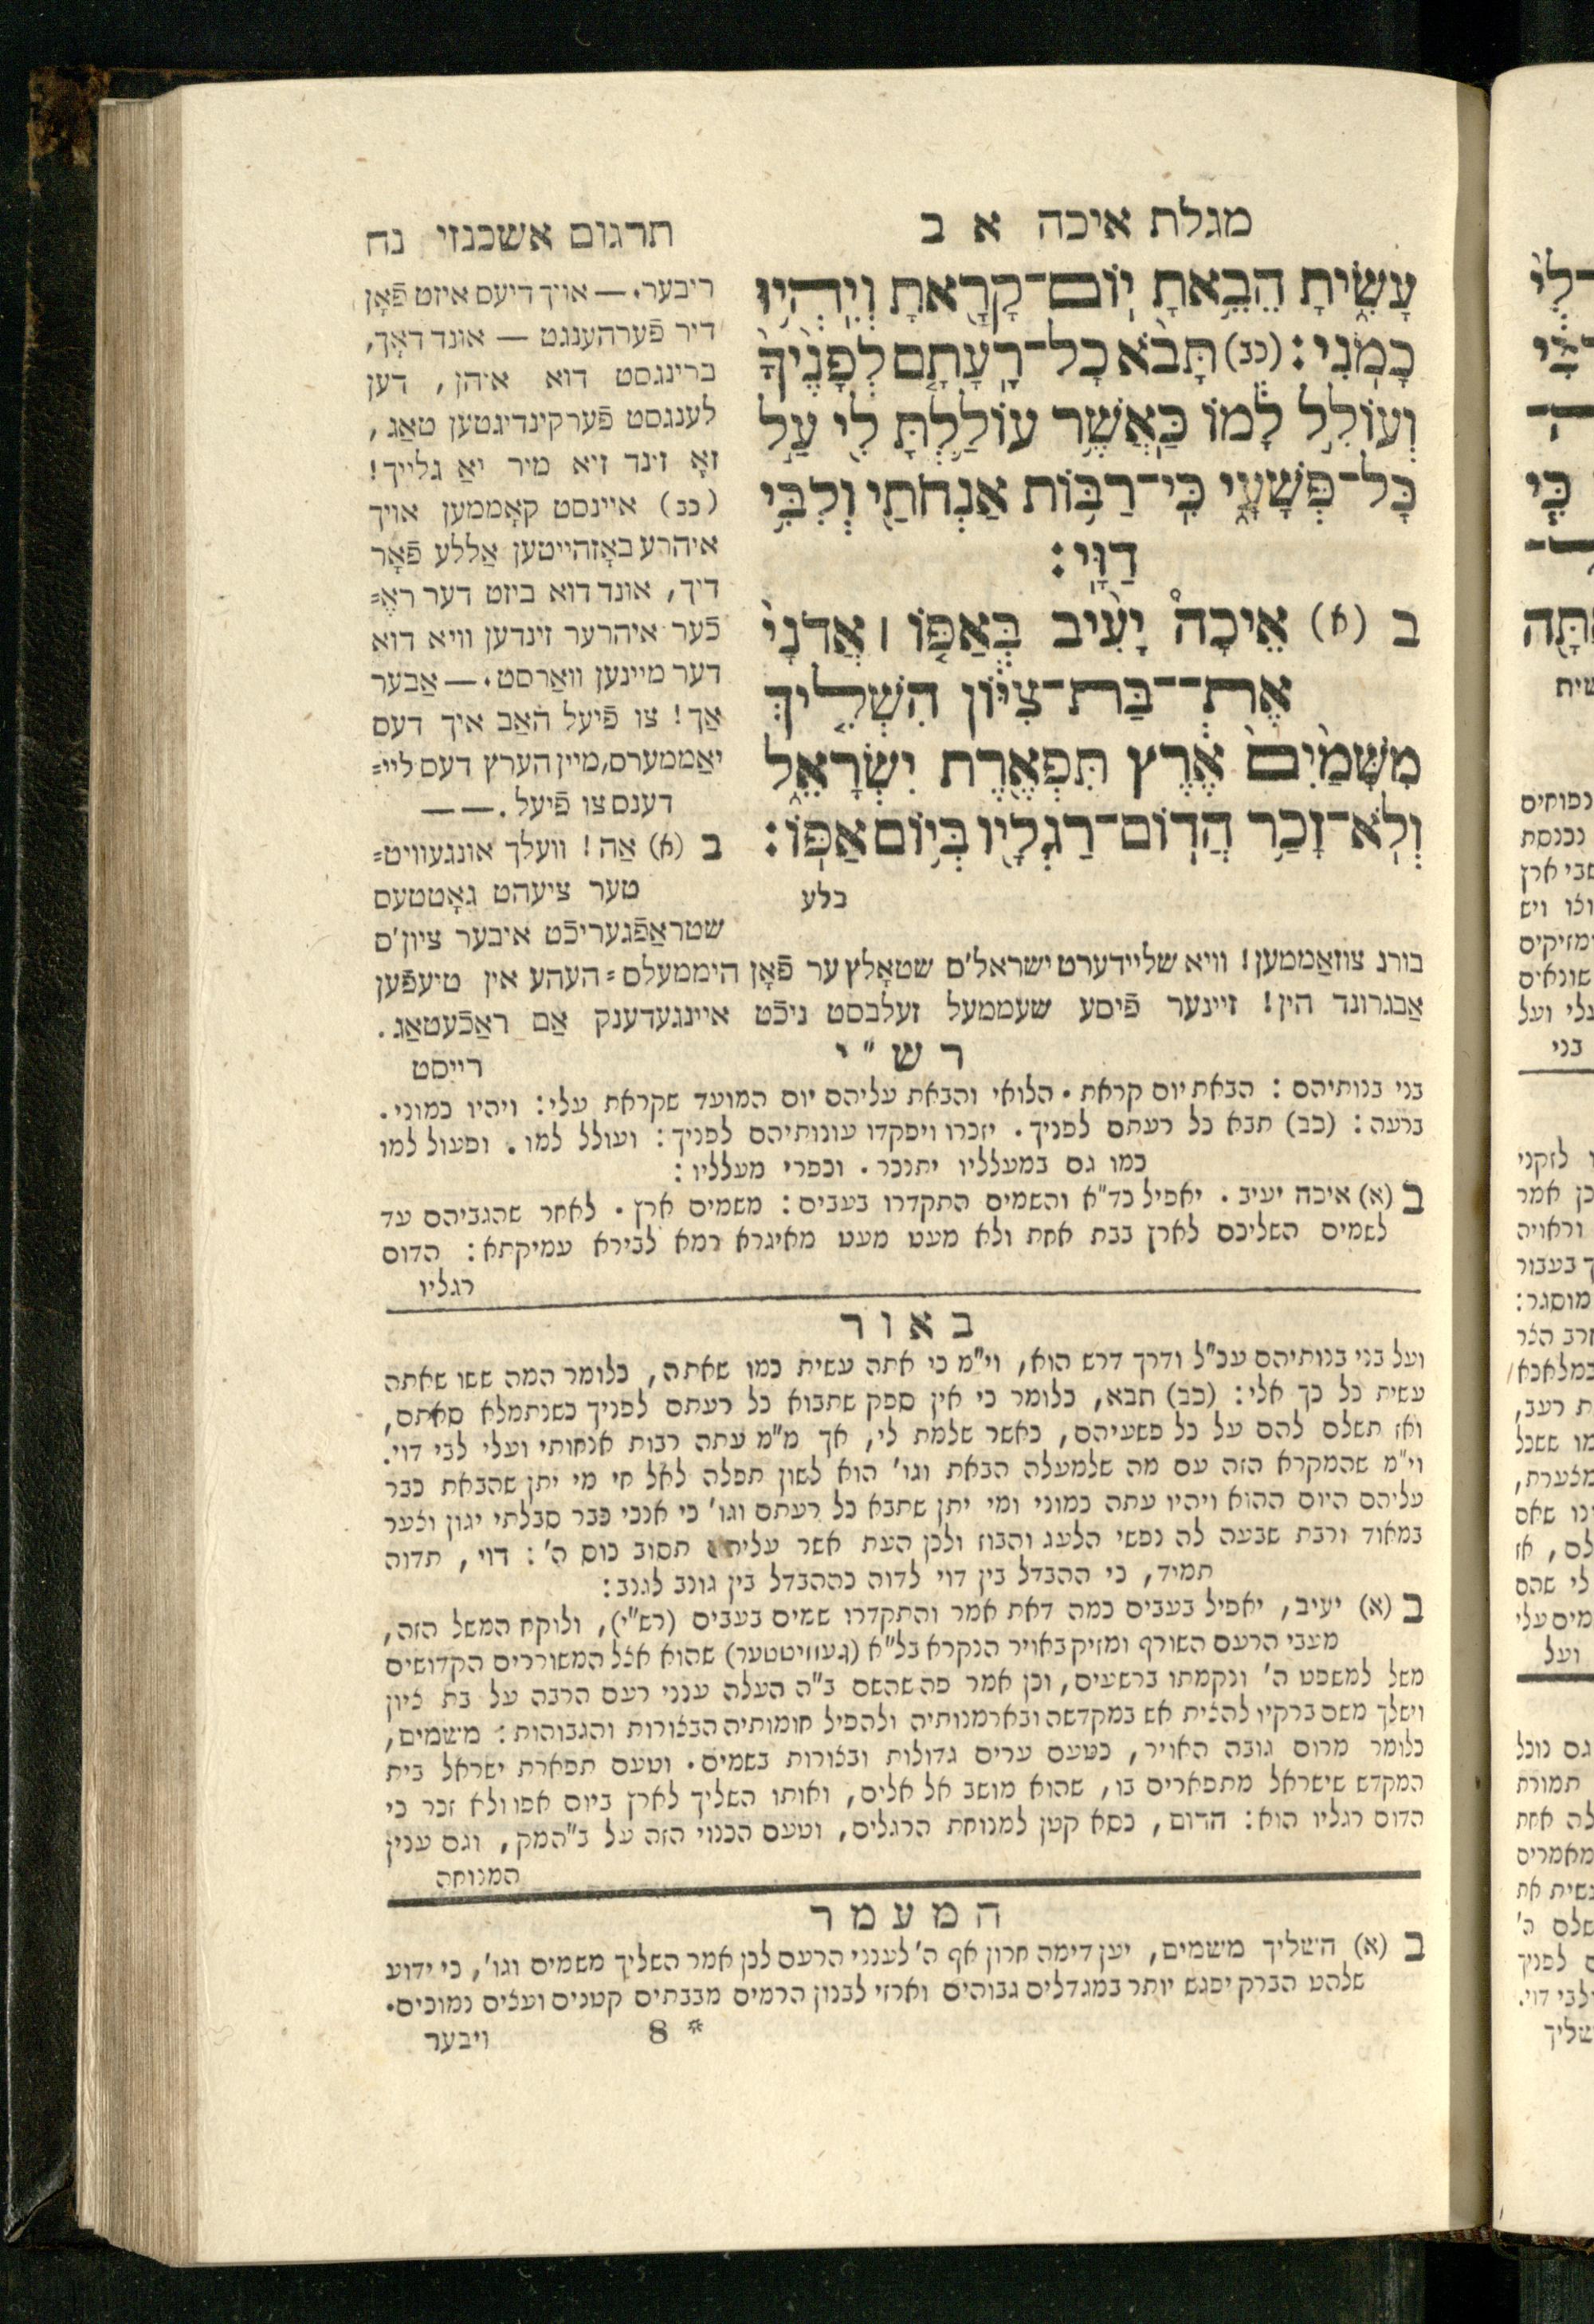 מגלת איכה א ב
תרגום אשכנזי נח
עָשִׂ֑יתָ הֵבֵ֥אתָ יֽוֹם־קָרָ֖אתָ וְיִֽהְי֥וּ
כָמֹֽנִי׃ (כב) תָּבֹ֨א כָל־רָֽעָתָ֤ם לְפָנֶ֙יךָ֙
וְעוֹלֵ֣ל לָ֔מוֹ כַּֽאֲשֶׁ֥ר עוֹלַ֛לְתָּ לִ֖י עַ֣ל
כָּל־פְּשָׁעָ֑י כִּֽי־רַבּ֥וֹת אַנְחֹתַ֖י וְלִבִּ֥י
דַוָּֽי׃
ב (א) אֵיכָה֩ יָעִ֨יב בְּאַפּ֤וֹ ׀ אֲדֹנָי֙
אֶת־־בַּת־צִיּ֔וֹן הִשְׁלִ֤יךְ
מִשָּׁמַ֙יִם֙ אֶ֔רֶץ תִּפְאֶ֖רֶת יִשְׂרָאֵ֑ל
וְלֹֽא־זָכַ֥ר הֲדֽוֹם־רַגְלָ֖יו בְּי֥וֹם אַפּֽוֹ׃
בלע
ריבער. — אויך דיעס איזט פֿאָן
דיר פֿערהענגט — אונד דאָך,
ברינגסט דוא איהן, דען
לענגסט פֿערקינדיגטען טאַג,
זאָ זינד זיא מיר יאַ גלייך!
(כב) איינסט קאָממען אויך
איהרע באָזהייטען אַללע פֿאָר
דיך, אונד דוא ביזט דער ראֶ=
כֿער איהרער זינדען וויא דוא
דער מיינען וואַרסט. — אַבער
אַך! צו פֿיעל האַב איך דעס
יאַממערס, מיין הערץ דעס ליי=
דענס צו פֿיעל. — —
ב (א) אַה! וועלך אונגעוויט=
טער ציעהט גאָטטעס
שטראַפֿגעריכֿט איבער ציון'ס
בורג צוזאַממען! וויא שליידערט ישראל'ס שטאָלץ ער פֿאָן היממעלס=העהע אין טיעפֿען
אַבגרונד הין! זיינער פֿיסע שעממעל זעלבסט ניכֿט איינגעדענק אַם ראַכֿעטאַג.
רייסט
רש"י
בני בנותיהם: הבאת יום קראת. הלואי והבאת עליהם יום המועד שקראת עלי: ויהיו כמוני.
ברעה: (כב) תבא כל רעתם לפניך. יזכרו ויפקדו עונותיהם לפניך: ועולל למו. ופעול למו
כמו גם במעלליו יתנכר. וכפרי מעלליו:
ב (א) איכה יעיב. יאפיל כד"א והשמים התקדרו בעבים: משמים ארץ. לאחר שהגביהם עד
לשמים השליכם לארץ בבת אחת ולא מעט מעט מאיגרא רמא לבירא עמיקתא: הדום
רגליו
באור
ועל בני בנותיהם עכ"ל ודרך דרש הוא, וי"מ כי אתה עשית כמו שאתה, כלומר המה ששו שאתה
עשית כל כך אלי: (כב) תבא, כלומר כי אין ספק שתבוא כל רעתם לפניך כשנתמלא סאתם,
ואז תשלם להם על כל פשעיהם, כאשר שלמת לי, אך מ"מ עתה רבות אנחותי ועלי לבי דוי.
וי"מ שהמקרא הזה עם מה שלמעלה הבאת וגו' הוא לשון תפלה לאל חי מי יתן שהבאת כבר
עליהם היום ההוא ויהיו עתה כמוני ומי יתן שתבא כל רעתם וגו' כי אנכי כבר סבלתי יגון וצער
במאוד ורבת שבעה לה נפשי הלעג והבוז ולכן העת אשר תסוב כוס ה': דוי, תדוה
תמיד, כי ההבדל בין דוי לדוה כההבדל בין גונב לגנב:
ב (א) יעיב, יאפיל בעבים כמה דאת אמר והתקדרו שמים בעבים (רש"י), ולוקח המשל הזה,
מעבי הרעם השורף ומזיק באויר הנקרא בל"א (געוויטטער) שהוא אצל המשוררים הקדושים
משל למשפט ה' ונקמתו ברשעים, וכן אמר פה שהשם ב"ה העלה ענני רעם הרבה על בת ציון
וישלך משם ברקיו להצית אש במקדשה ובארמנותיה ולהפיל חומותיה הבצורות והגבוהות: משמים,
כלומר מרום גובה האויר, כטעם ערים גדולות ובצורות בשמים. וטעם תפארת ישראל בית
המקדש שישראל מתפארים בו, שהוא מושב אל אלים, ואותו השליך לארץ ביום אפו ולא זכר כי
הדום רגליו הוא: הדום, כסא קטן למנוחת הרגלים, וטעם הכנוי הזה על ב"המק, וגם ענין
המנוחה
המעמר
ב (א) השליך משמים, יען דימה חרון אף ה' לענני הרעם לכן אמר השליך משמים וגו', כי ידוע
שלהט הברק יפגש יותר במגדלים גבוהים וארזי לבנון הרמים מבבתים קטנים ועצים נמוכים.
* 8
ויבער